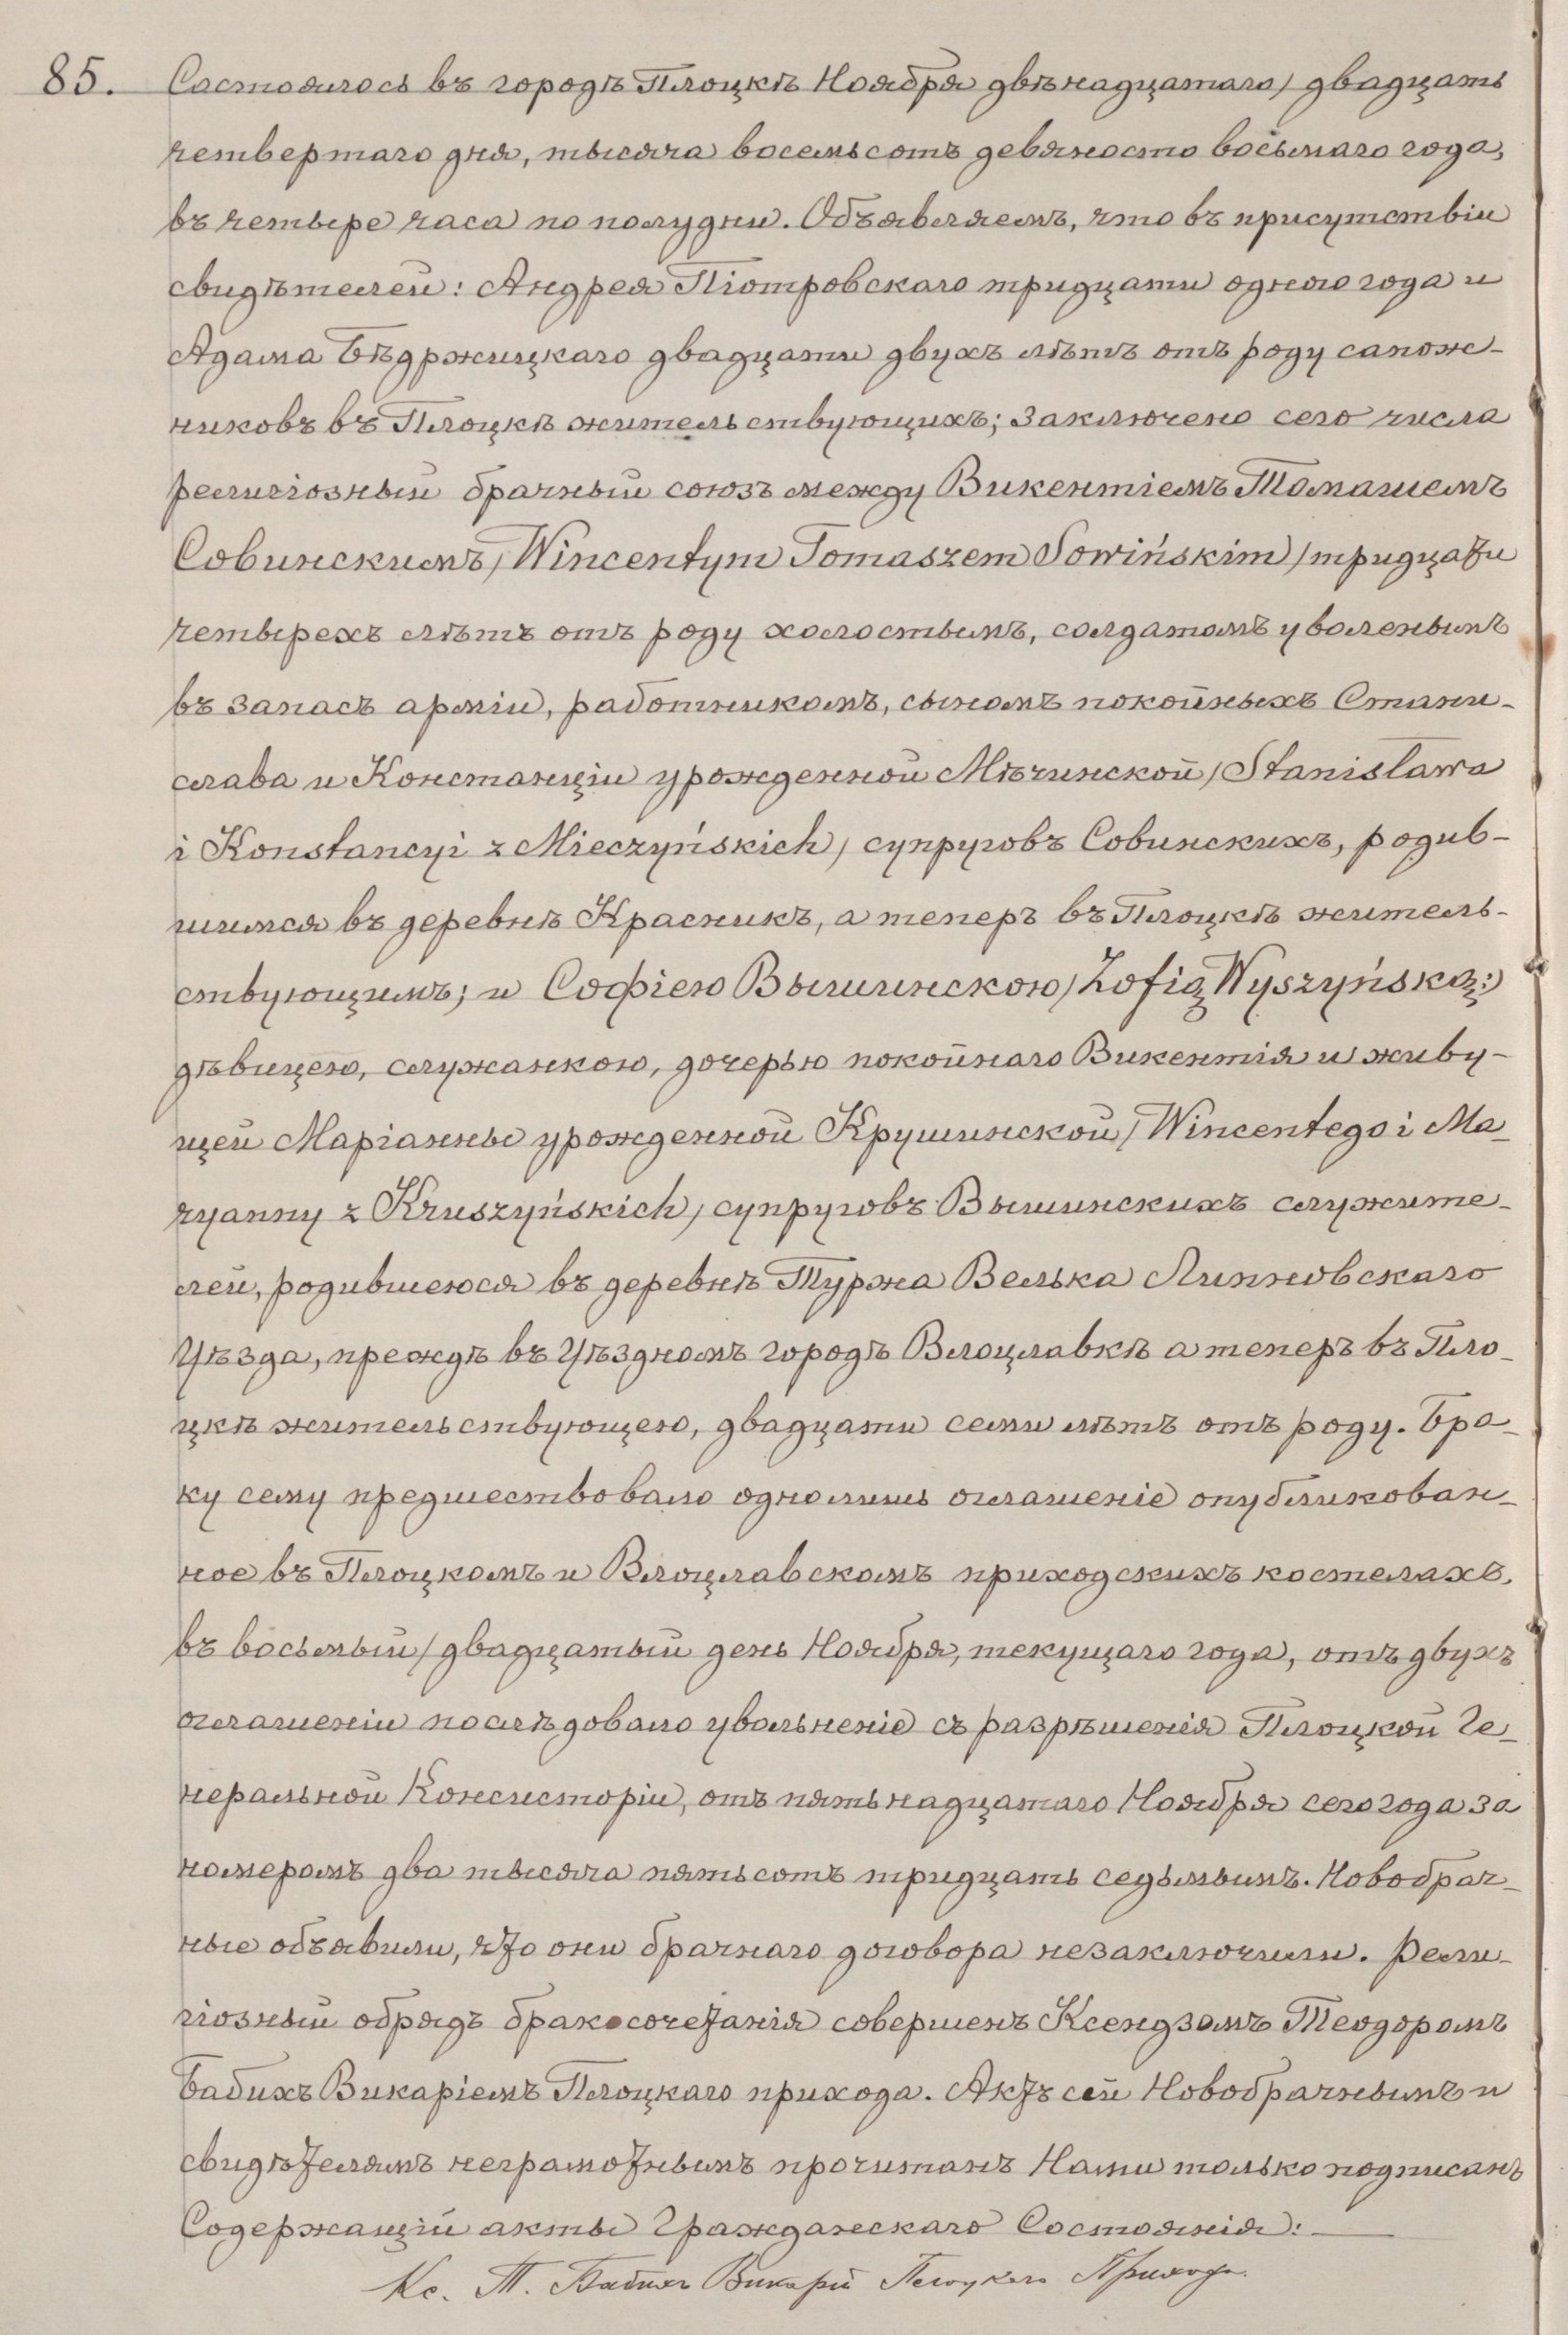 85. Состоялось въ городѣ Плоцкѣ Ноября двѣнадцатаго/двадцать
четвертаго дня, тысяча восемьсотъ девяносто восьмаго года,
въ четыре часа по полудни. Объявляемъ, что въ присутствіи
свидѣтелей: Андрея Піотровскаго тридцати одного года и
Адама Бѣдржицкаго двадцати двухъ лѣтъ отъ роду сапож-
никовъ въ Плоцкѣ жительствующихъ; заключено сего числа
религіозный брачный союзъ между Викентіемъ Томашемъ
Совинскимъ/Wincentym Tomaszem Sowińskim/тридцати
четырехъ лѣтъ отъ роду холостымъ, солдатомъ уволенымъ
въ запасъ арміи, работникомъ, сыномъ покойныхъ Стани-
слава и Констанціи урожденной Мѣчинской/Stanisława
i Konstancyi z Mieczyńskich/супруговъ Совинскихъ, родив-
шимся въ деревнѣ Красникъ, а теперъ въ Плоцкѣ житель-
ствующимъ; и Софіею Вышинскою/Zofią Wyszyńską:)
дѣвицею, служанкою, дочерью покойнаго Викентія и живу-
щей Маріанны урожденной Крушинской/Wincentego i Ma-
ryanny z Kruszyńskich/супруговъ Вышинскихъ служите-
лей, родившеюся въ деревнѣ Туржа Велька Липновскаго
Уѣзда, преждѣ въ Уѣздномъ городѣ Влоцлавкѣ а теперъ въ Пло-
цкѣ жительствующею, двадцати семи лѣтъ отъ роду. Бра-
ку сему предшествовало однолишь оглашеніе опубликован-
ное въ Плоцкомъ и Влоцлавскомъ приходскихъ костелахъ,
въ восьмый/двадцатый день Ноября, текущаго года, отъ двухъ
оглашеніи послѣдовало увольненіе съ разрѣшенія Плоцкой Ге-
неральной Консисторіи, отъ пятьнадцатаго Ноября сего года за
номеромъ два тысяча пятьсотъ тридцать седьмымъ. Новобрач-
ные объявили, что они брачнаго договора незаключили. Рели-
гіозный обрядъ бракосочетанія совершенъ Ксендзомъ Теодоромъ
Бабихъ Викаріемъ Плоцкаго прихода. Актъ сей Новобрачнымъ и
свидѣтелямъ неграмотнымъ прочитанъ Нами только подписанъ
Содержащій акты Гражданскаго Состоянія:
Кс. Т. Бабихъ Викарій Плоцкаго Прихода.